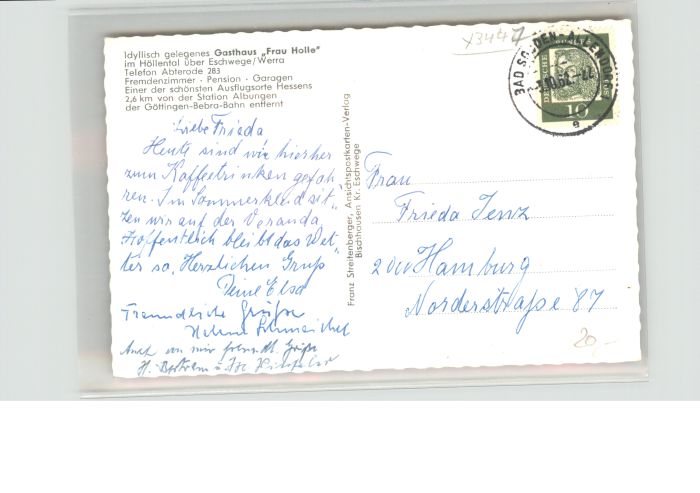 Idyllisch gelegenes Gasthaus „Frau Holle"
im Höllental über Eschwege/Werra
Telefon Abterode 283
Fremdenzimmer · Pension · Garagen
Einer der schönsten Ausflugsorte Hessens
2,6 km von der Station Albungen
der Göttingen-Bebra-Bahn entfernt
Liebe Frieda
Heute sind wir hierher
zum Kaffeetrinken gefah
ren. Im Sommerkleid sit„
zen wir auf der Veranda
Hoffentlich bleibt das Wet„
ter so. Herzlichen Gruß
Deine Elsa
Freundliche Grüße
Auch von mir freundl. Grüße
Franz Streitenberger, Ansichtspostkarten-Verlag
Bischhausen Kr. Eschwege
Y3447
BAD SOODEN-ALLENDORF
e
10
Frau
Frieda Jenz
2000 Hamburg
Norderstraße 87
20,-